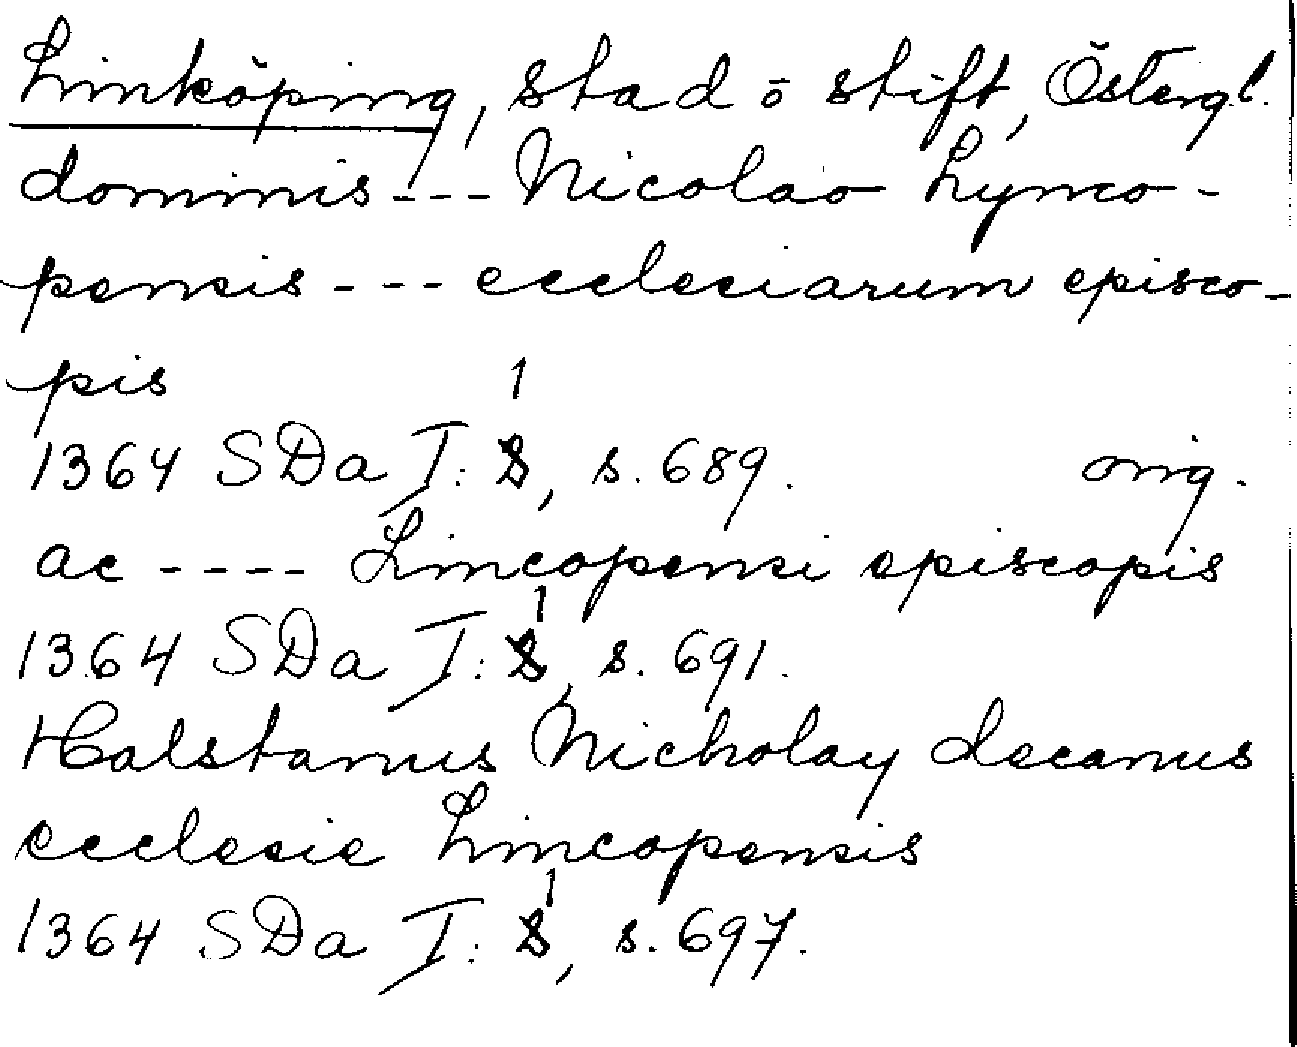 Linköping, stad o stift, Östergl.
dominis --- Nicolao Lynco-
pensis --- ecclesiarum episco-
pis
1
1364 SDa I: 8, s. 689. orig.
ac ---- Lincopensi episcopis
1
1364 SDa I: 8, s. 691.
Halstanus Nicholay decanus
ecclesie Lincopensis
1
1364 SDa I: 8, s. 697.